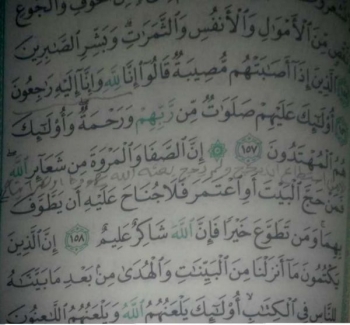 خوف والجوع
من الأموال والأنفس والثمرات وبشر الصابرين
الذين إذا أصابتهم مصيبة قالوا إنا لله وإنا إليه راجعون
أولئك عليهم صلوات من ربهم ورحمة وأولئك
هم المهتدون ١٥٧ إن الصفا والمروة من شعائر الله
فمن حج البيت أو اعتمر فلا جناح عليه أن يطوف
بهما ومن تطوع خيرا فإن الله شاكر عليم ١٥٨ إن الذين
يكتمون ما أنزلنا من البينات والهدى من بعد ما بيناه
للناس في الكتاب أولئك يلعنهم الله ويلعنهم اللاعنون